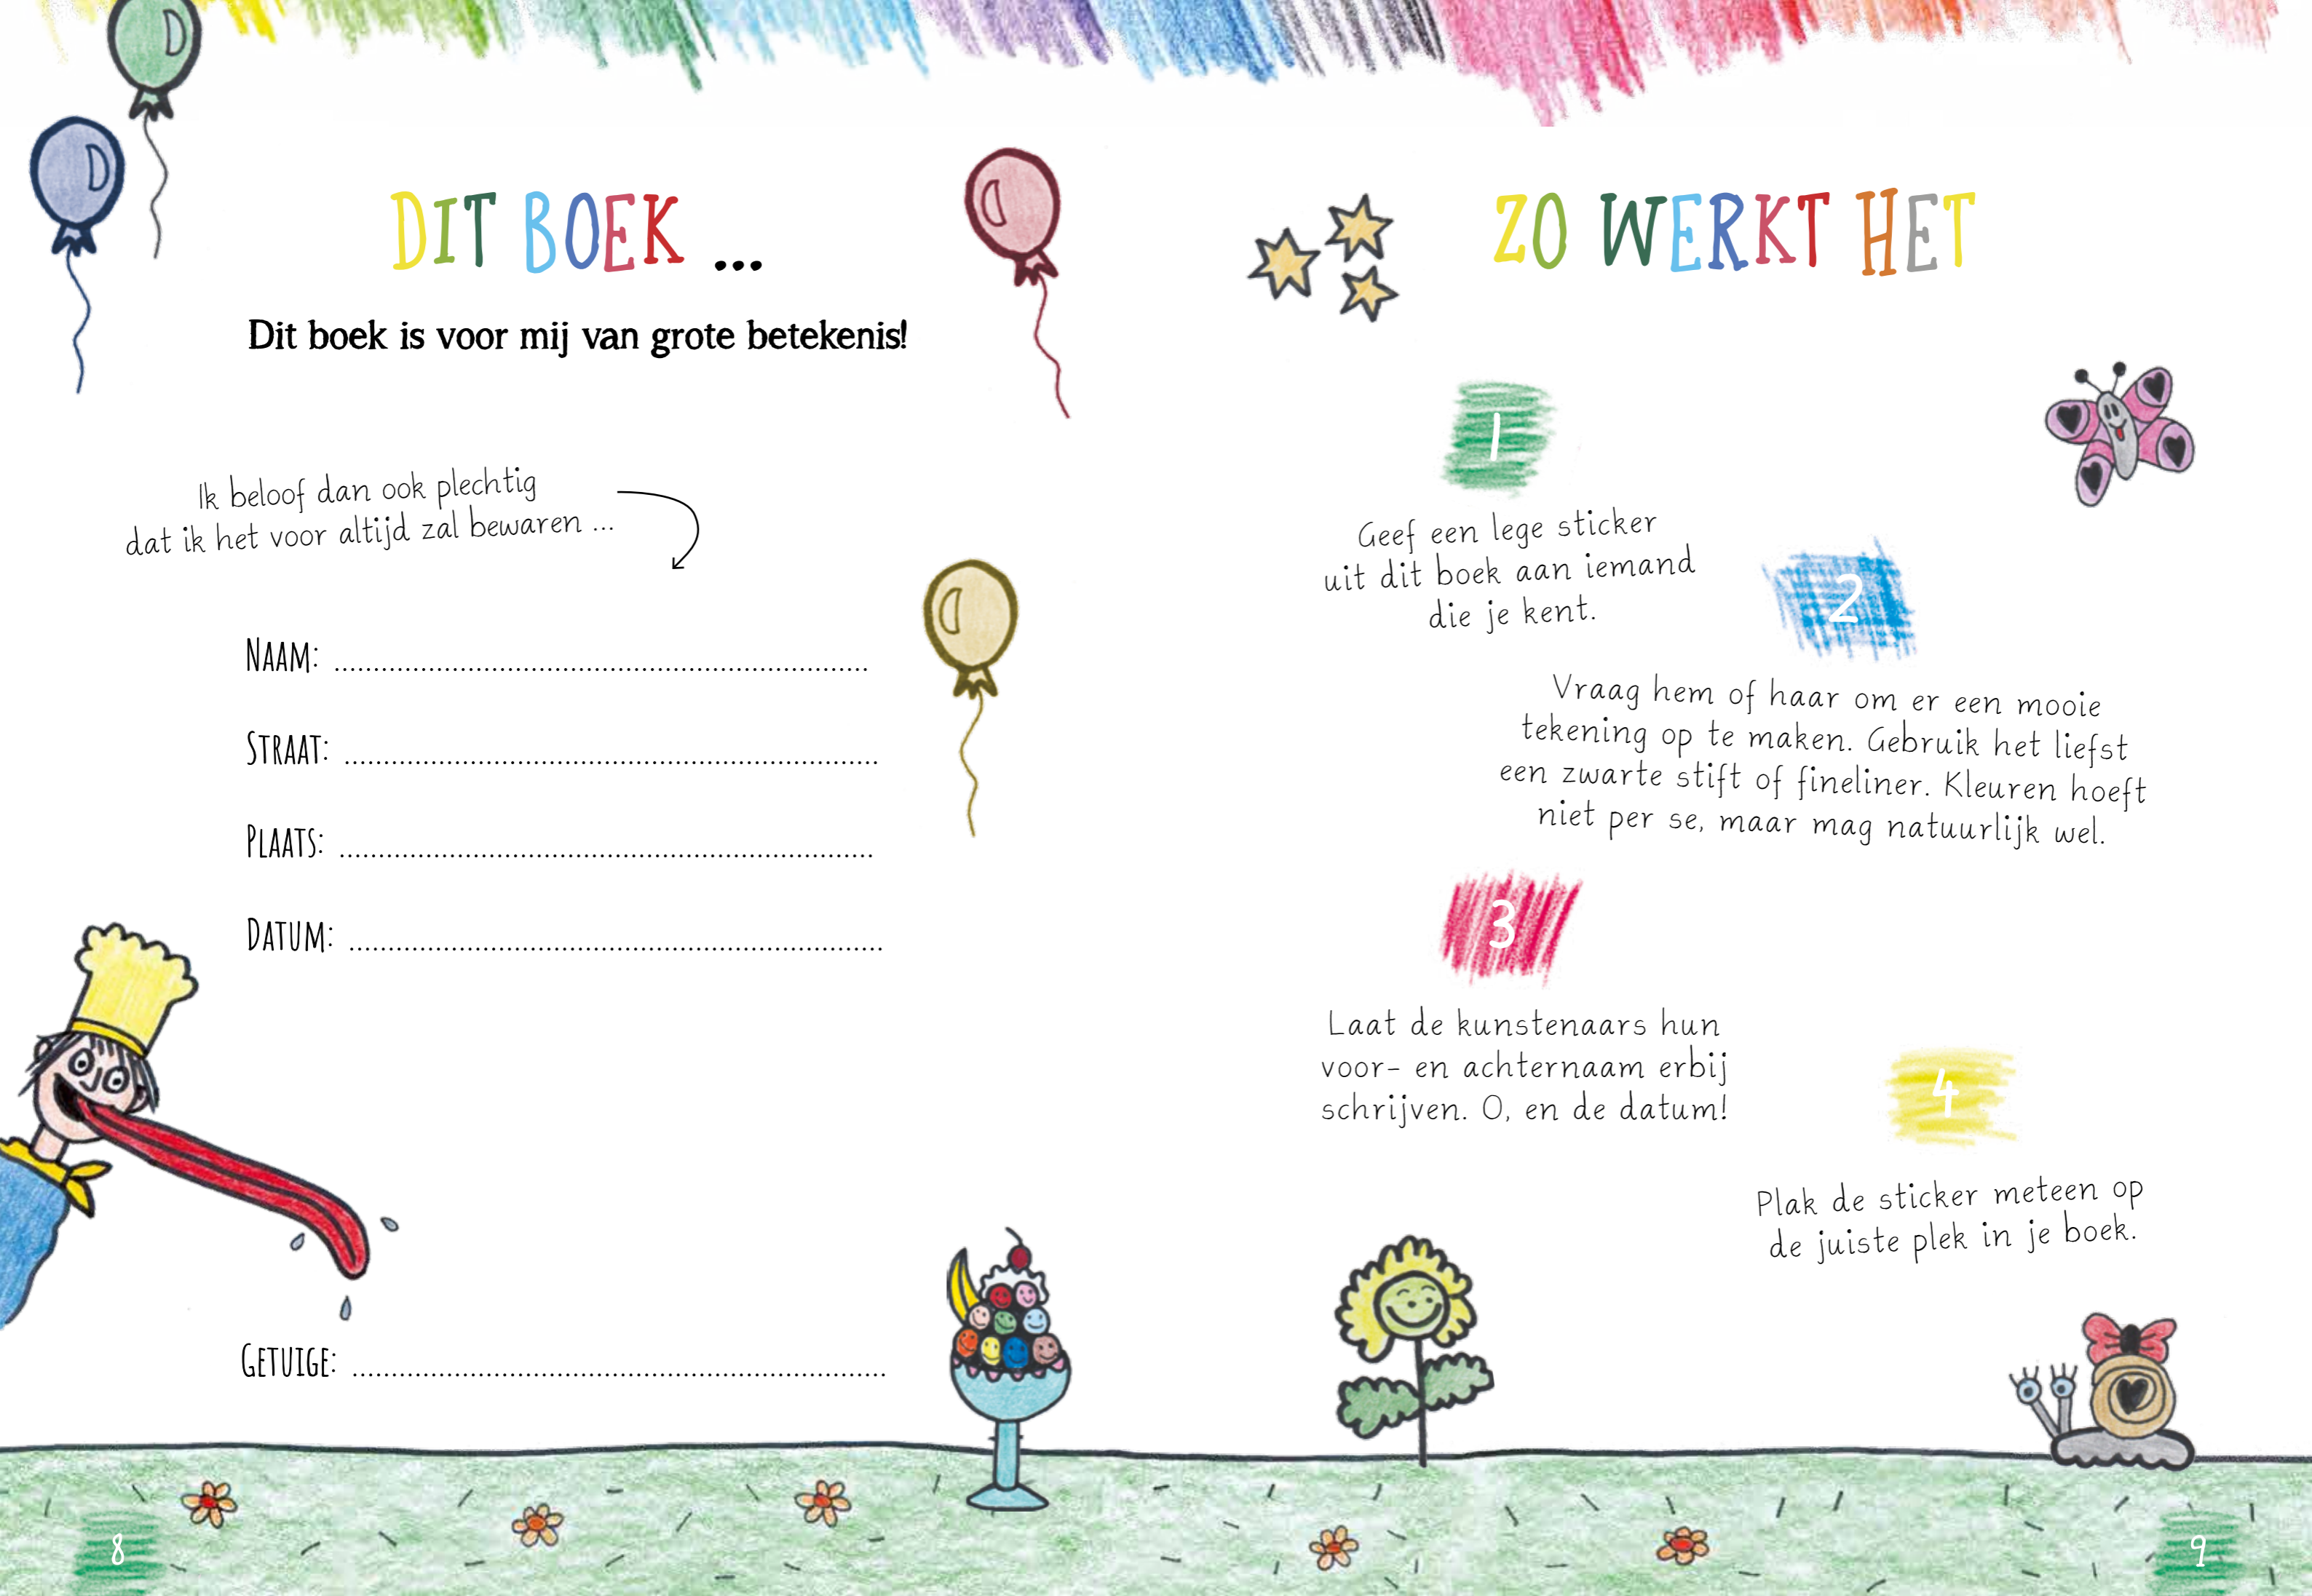 DIT BOEK ...
Dit boek is voor mij van grote betekenis!
Ik beloof dan ook plechtig
dat ik het voor altijd zal bewaren ...
NAAM: ....................................................................
STRAAT: ....................................................................
PLAATS: ....................................................................
DATUM: ....................................................................
GETUIGE: ....................................................................
8
ZO WERKT HET
1
Geef een lege sticker
uit dit boek aan iemand
die je kent.
2
Vraag hem of haar om er een mooie
tekening op te maken. Gebruik het liefst
een zwarte stift of fineliner. Kleuren hoeft
niet per se, maar mag natuurlijk wel.
3
Laat de kunstenaars hun
voor- en achternaam erbij
schrijven. O, en de datum!
4
Plak de sticker meteen op
de juiste plek in je boek.
9